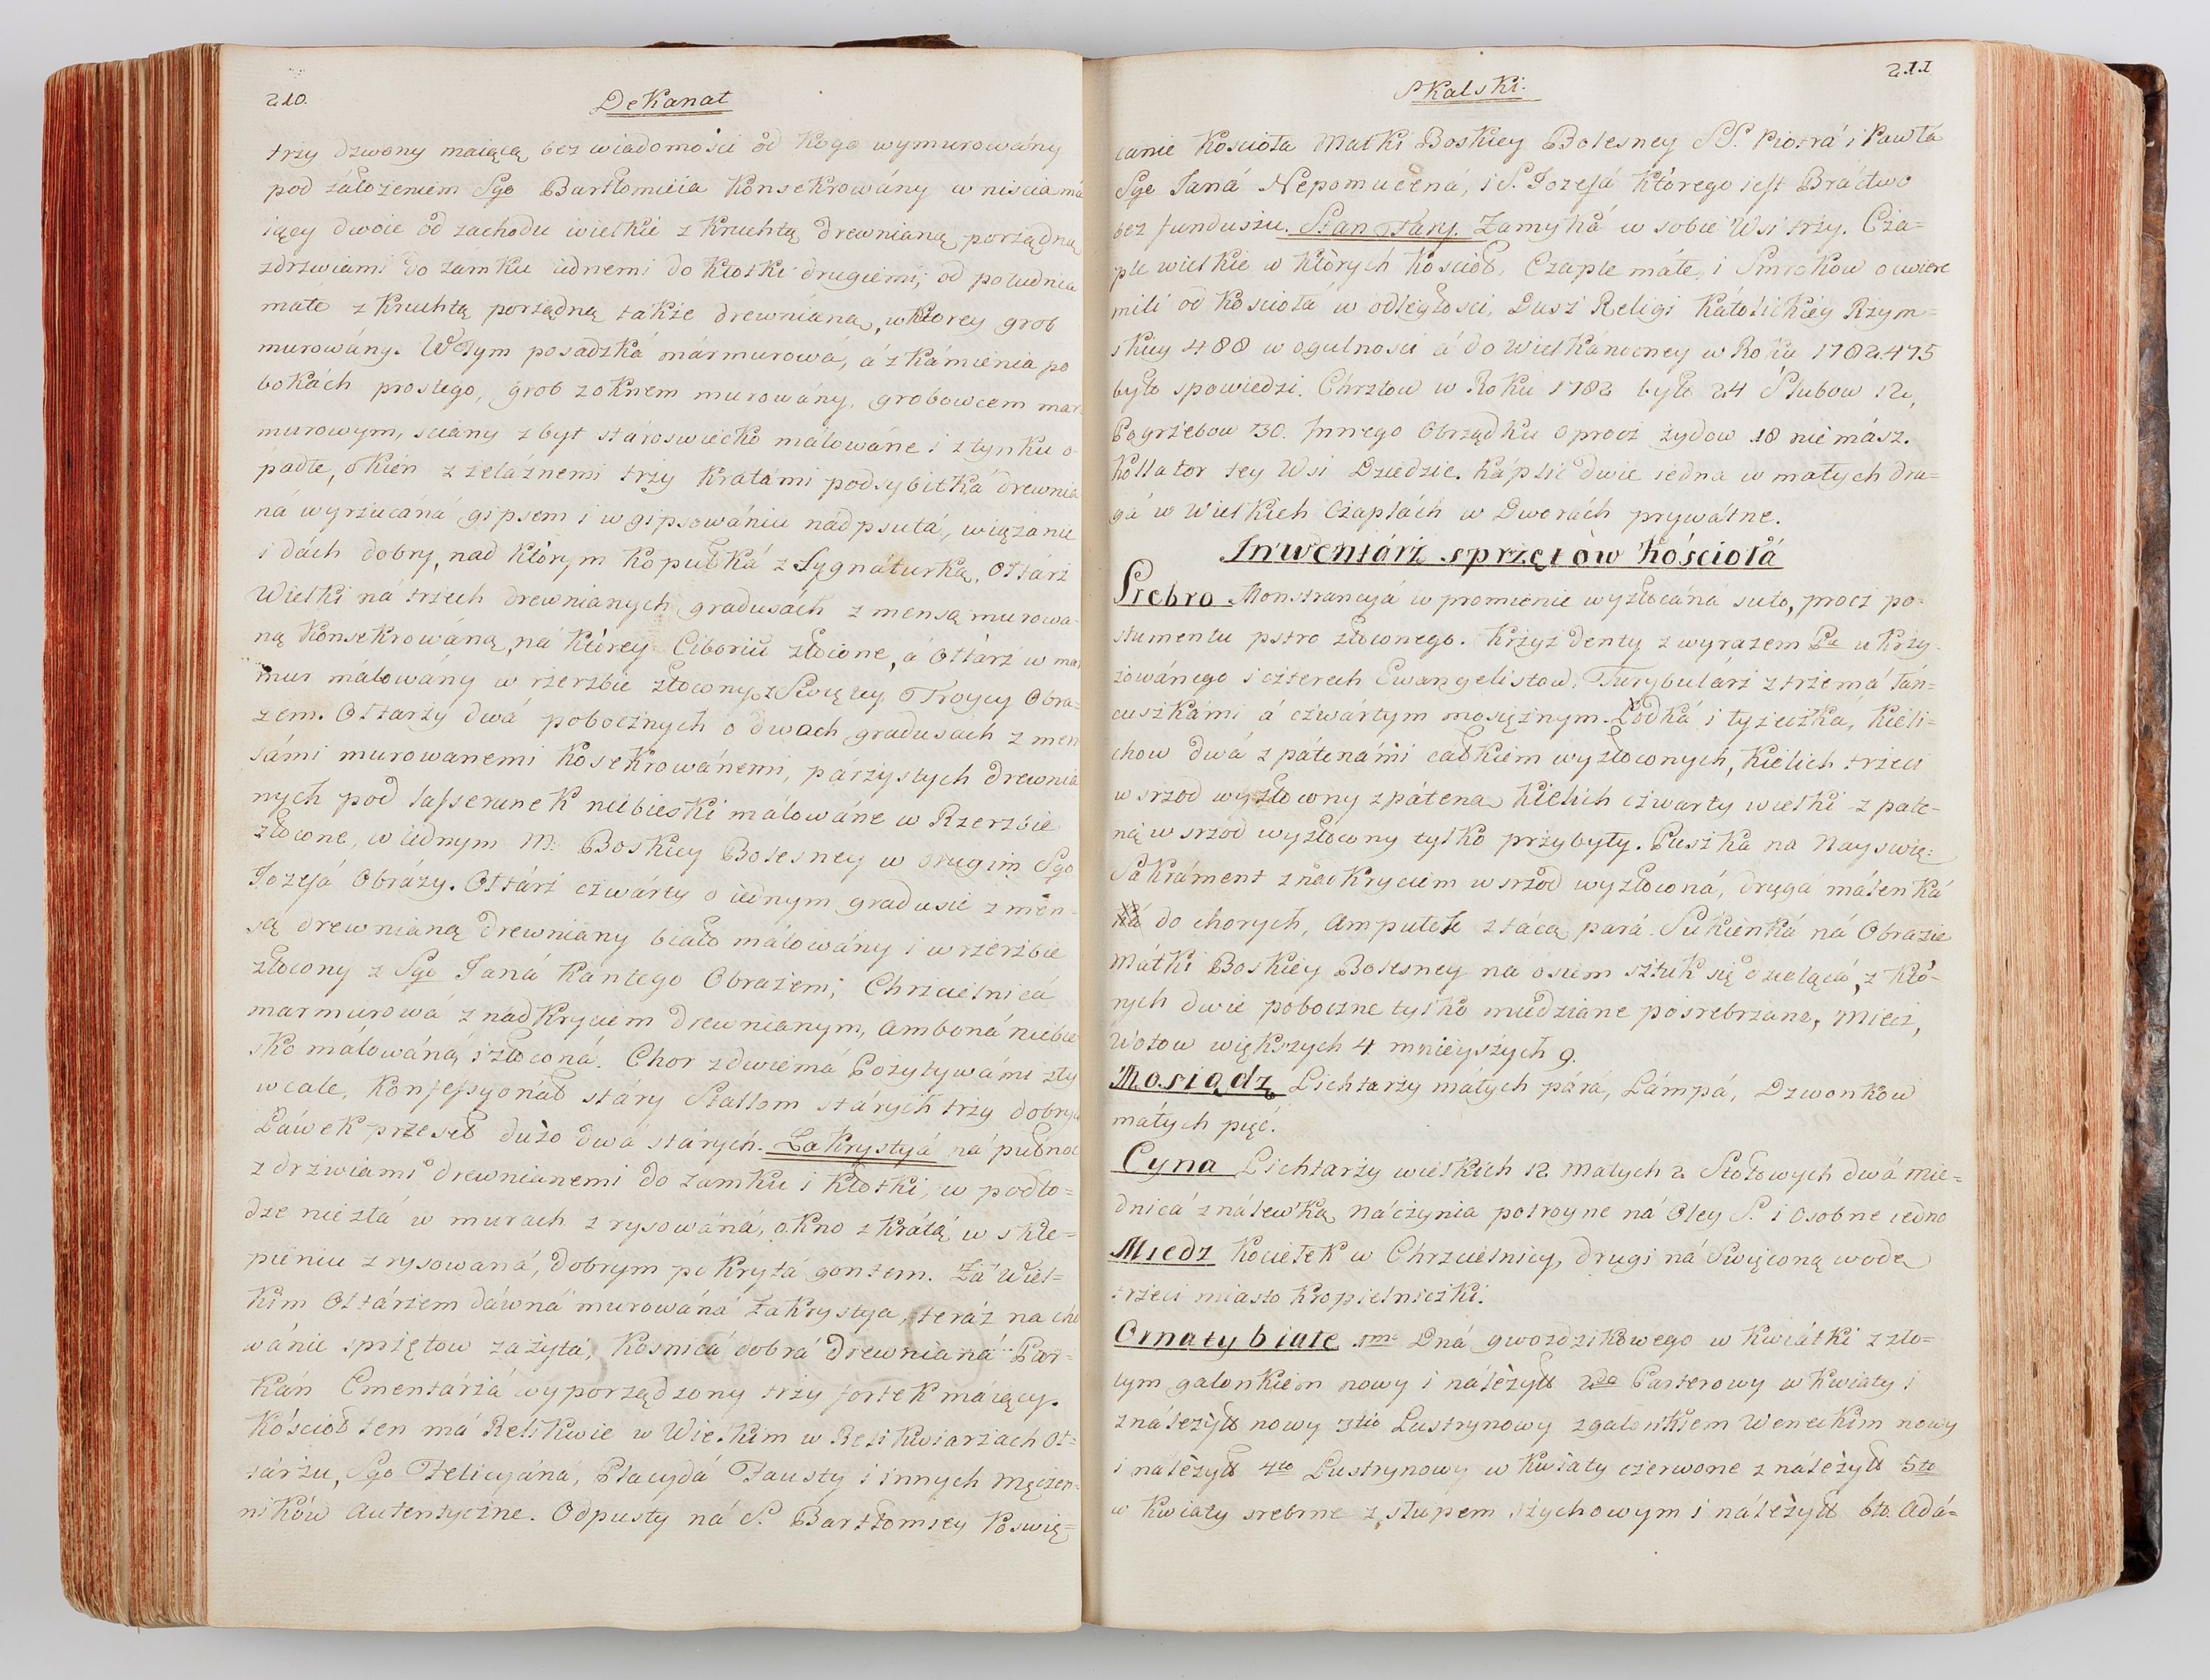 210.
Dekanat
trzy dzwony maiącą bez wiadomości od kogo wymurowány
pod záłożeniem Sgo Bartłomieia Konsekrowány wniścia má
iący dwoie od zachodu wielkie z Kruchtą drewnianą porządną
zdrzwiami do zámku iednemi do kłotki drugiemi, od południa
małe z Kruchtą porządną także drewnianą, w ktorey grob
murowány. W tym posadzká mármurowá, á z kámienia po
bokách prostego, grob z oknem murowány, grobowcem mar
murowym, sciany zbyt stároswiecko málowáne i z tynku o-
padłe, okien z zelaznemi trzy kratámi podsybitká drewnia
ná wyrzucáná gipsem i w gipsowániu nádpsutá, wiązanie
i dách dobry, nad którym kopułká z Sygnáturką, Ołtárz
Wielki ná trzech drewnianych gradusách z mensą murowa-
ną Konsekrowáną, ná którey Ciboriū złocone, á Ołtárz w mar
mur málowány w rzezbie złocony z Swiętey Troycy Obra-
zem. Ołtarzy dwá pobocznych o dwoch gradusách z men
sámi murowanemi Kosekrowánemi, párzystych drewnia
nych pod lasserunek niebieski málowáne w Rzezbie
złocone, w iednym M. Boskiey Bolesney w drugim Sgo
Jozefá Obrázy. Ołtárz czwárty o iednym gradusie z men-
są drewnianą drewniany biało málowány i w rzezbie
złocony z Sgo Janá Kantego Obrazem; Chrzcielnicá
marmurowá z nadkryciem drewnianym, Amboná niebie
sko málowáná i złoconá. Chor z dwiemá Pozytywámi zły
wcale, Konfessyonał stáry Stallom stárych trzy dobrych
Ławek przeseł dużo dwá stárych. Zakrystyá ná pułnoc
z drzwiami drewnianemi do zamku i kłotki, w podło=
dze niezłá w murach zrysowáná, okno z krátą w skle=
pieniu zrysowaná, dobrym pokrytá gontem. Zá Wiel=
kim Ołtárzem dáwná murowáná Zakrystya, teráz na cho
wánie sprzętow zażytá, Kosnicá dobrá drewnianá Par=
kán Cmentárzá wyporządzony trzy fortek máiący.
Kościoł ten má Relikwie w Wielkim w Relikwiarzách Oł=
tárzu, Sgo Felicyáná, Placydá Fausty i innych Męczen-
nikòw Autentyczne. Odpusty ná S. Bartłomiey Poswię=
211
Skalski.
canie Kościoła Matki Boskiey Bolesney SS. Piotrá i Pawłá
Sgo Janá Nepomucená, i S. Jozefá którego iest Bráctwo
bez funduszu. Stan Fary. Zamyká w sobie Wsi trzy. Cza=
ple wielkie w których kościoł, Czaple máłe, i Smrokow o cwierc
mili od kościołá w odległosci, Dusz Religi Kátolickiey Rzym=
skiey 488 w ogulnosci á do Wielkánocney w Roku 1782. 475
było spowiedzi. Chrztow w Roku 1782 było 24 Slubow 12,
Pogrzebow 30. Innego Obrządku oprocz żydow 18 niemász.
Kollator tey Wsi Dziedzic. Káplic dwie iedna w małych dru=
gá w Wielkich Czaplách w Dworách prywátne.
Inwentárz sprzętòw kòściołá
Srebro Monstrancyá w promienie wyzłocána suto, procz po-
stumentu pstro złoconego. Krzyż denty z wyrazem Pa ukrzy-
żowánego i czterech Ewangelistow. Turybulárz z trzemá łáń=
cuszkámi á czwártym mosiężnym. Łodká i łyżeczka, Kieli=
chow dwá z páteńámi całkiem wyzłoconych, Kielich trzeci
w srzod wyzłocony z páteną Kielich czwarty wielki z pate-
ną w srzod wyzłocony tylko przybyły. Puszka na Nayswię:
Sákráment z nadkryciem w srzod wyzłoconá, drugá máleńká
do chorych, Ampułek z tácą pará. Sukienká ná Obrazie
Mátki Boskiey Bolesney na osiem sztuk się dzieląca, z któ-
rych dwie poboczne tylko miedziane posrebrzane, Miecz,
Wotow większych 4 mnieyszych 9.
Mosiądz Lichtarzy máłych párá, Lámpá, Dzwonkow
małych pięć.
Cyna Lichtarzy wielkich 12 Małych 2 Stołowych dwá Mie=
dnicá z nálewką náczynia potroyne ná Oley S. i Osobne iedno
Miedz Kociełek w Chrzcielnicy, drugi ná Swięconą wodę
trzeci miasto kropielniczki.
Ornaty białe 1mo Dná gwozdzikowego w kwiátki z zło=
tym galonkiem nowy i náleżyt 2do Parterowy w kwiaty i
z náleżyt nowy 3tio Lustrynowy z galonkiem Weneckim nowy
i náleżyt 4to Lustrynowy w kwiaty czerwone z náleżyt 5to
w kwiaty srebrne z słupem szychowym i náleżyt 6to. Adá=